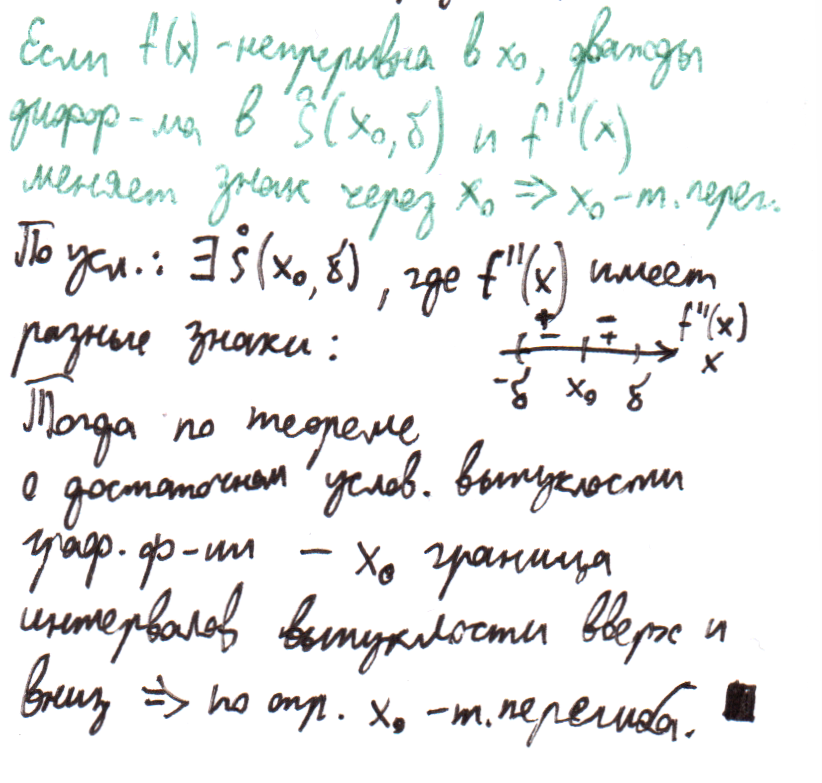 Если f(x) - непрерывна в x₀, дважды
дифф-ма в S̊(x₀,δ) и f''(x)
меняет знак через x₀ ⇒ x₀ - т. перег.
По усл.: ∃ S̊(x₀,δ), где f''(x) имеет
разные знаки:
+ − f''(x)
− + x
-δ x₀ δ
Тогда по теореме
о достаточном услов. выпуклости
граф. ф-ии - x₀ граница
интервалов выпуклости вверх и
вниз ⇒ по опр. x₀ - т. перегиба. ■